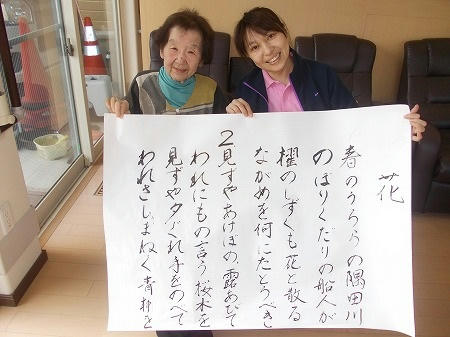 花
春のうららの隅田川
のぼりくだりの船人が
櫂のしずくも花と散る
ながめを何にたとうべき
2見ずやあけぼの露あびて
われにもの言う桜木を
見ずや夕ぐれ手をのべて
われさしまねく青柳を